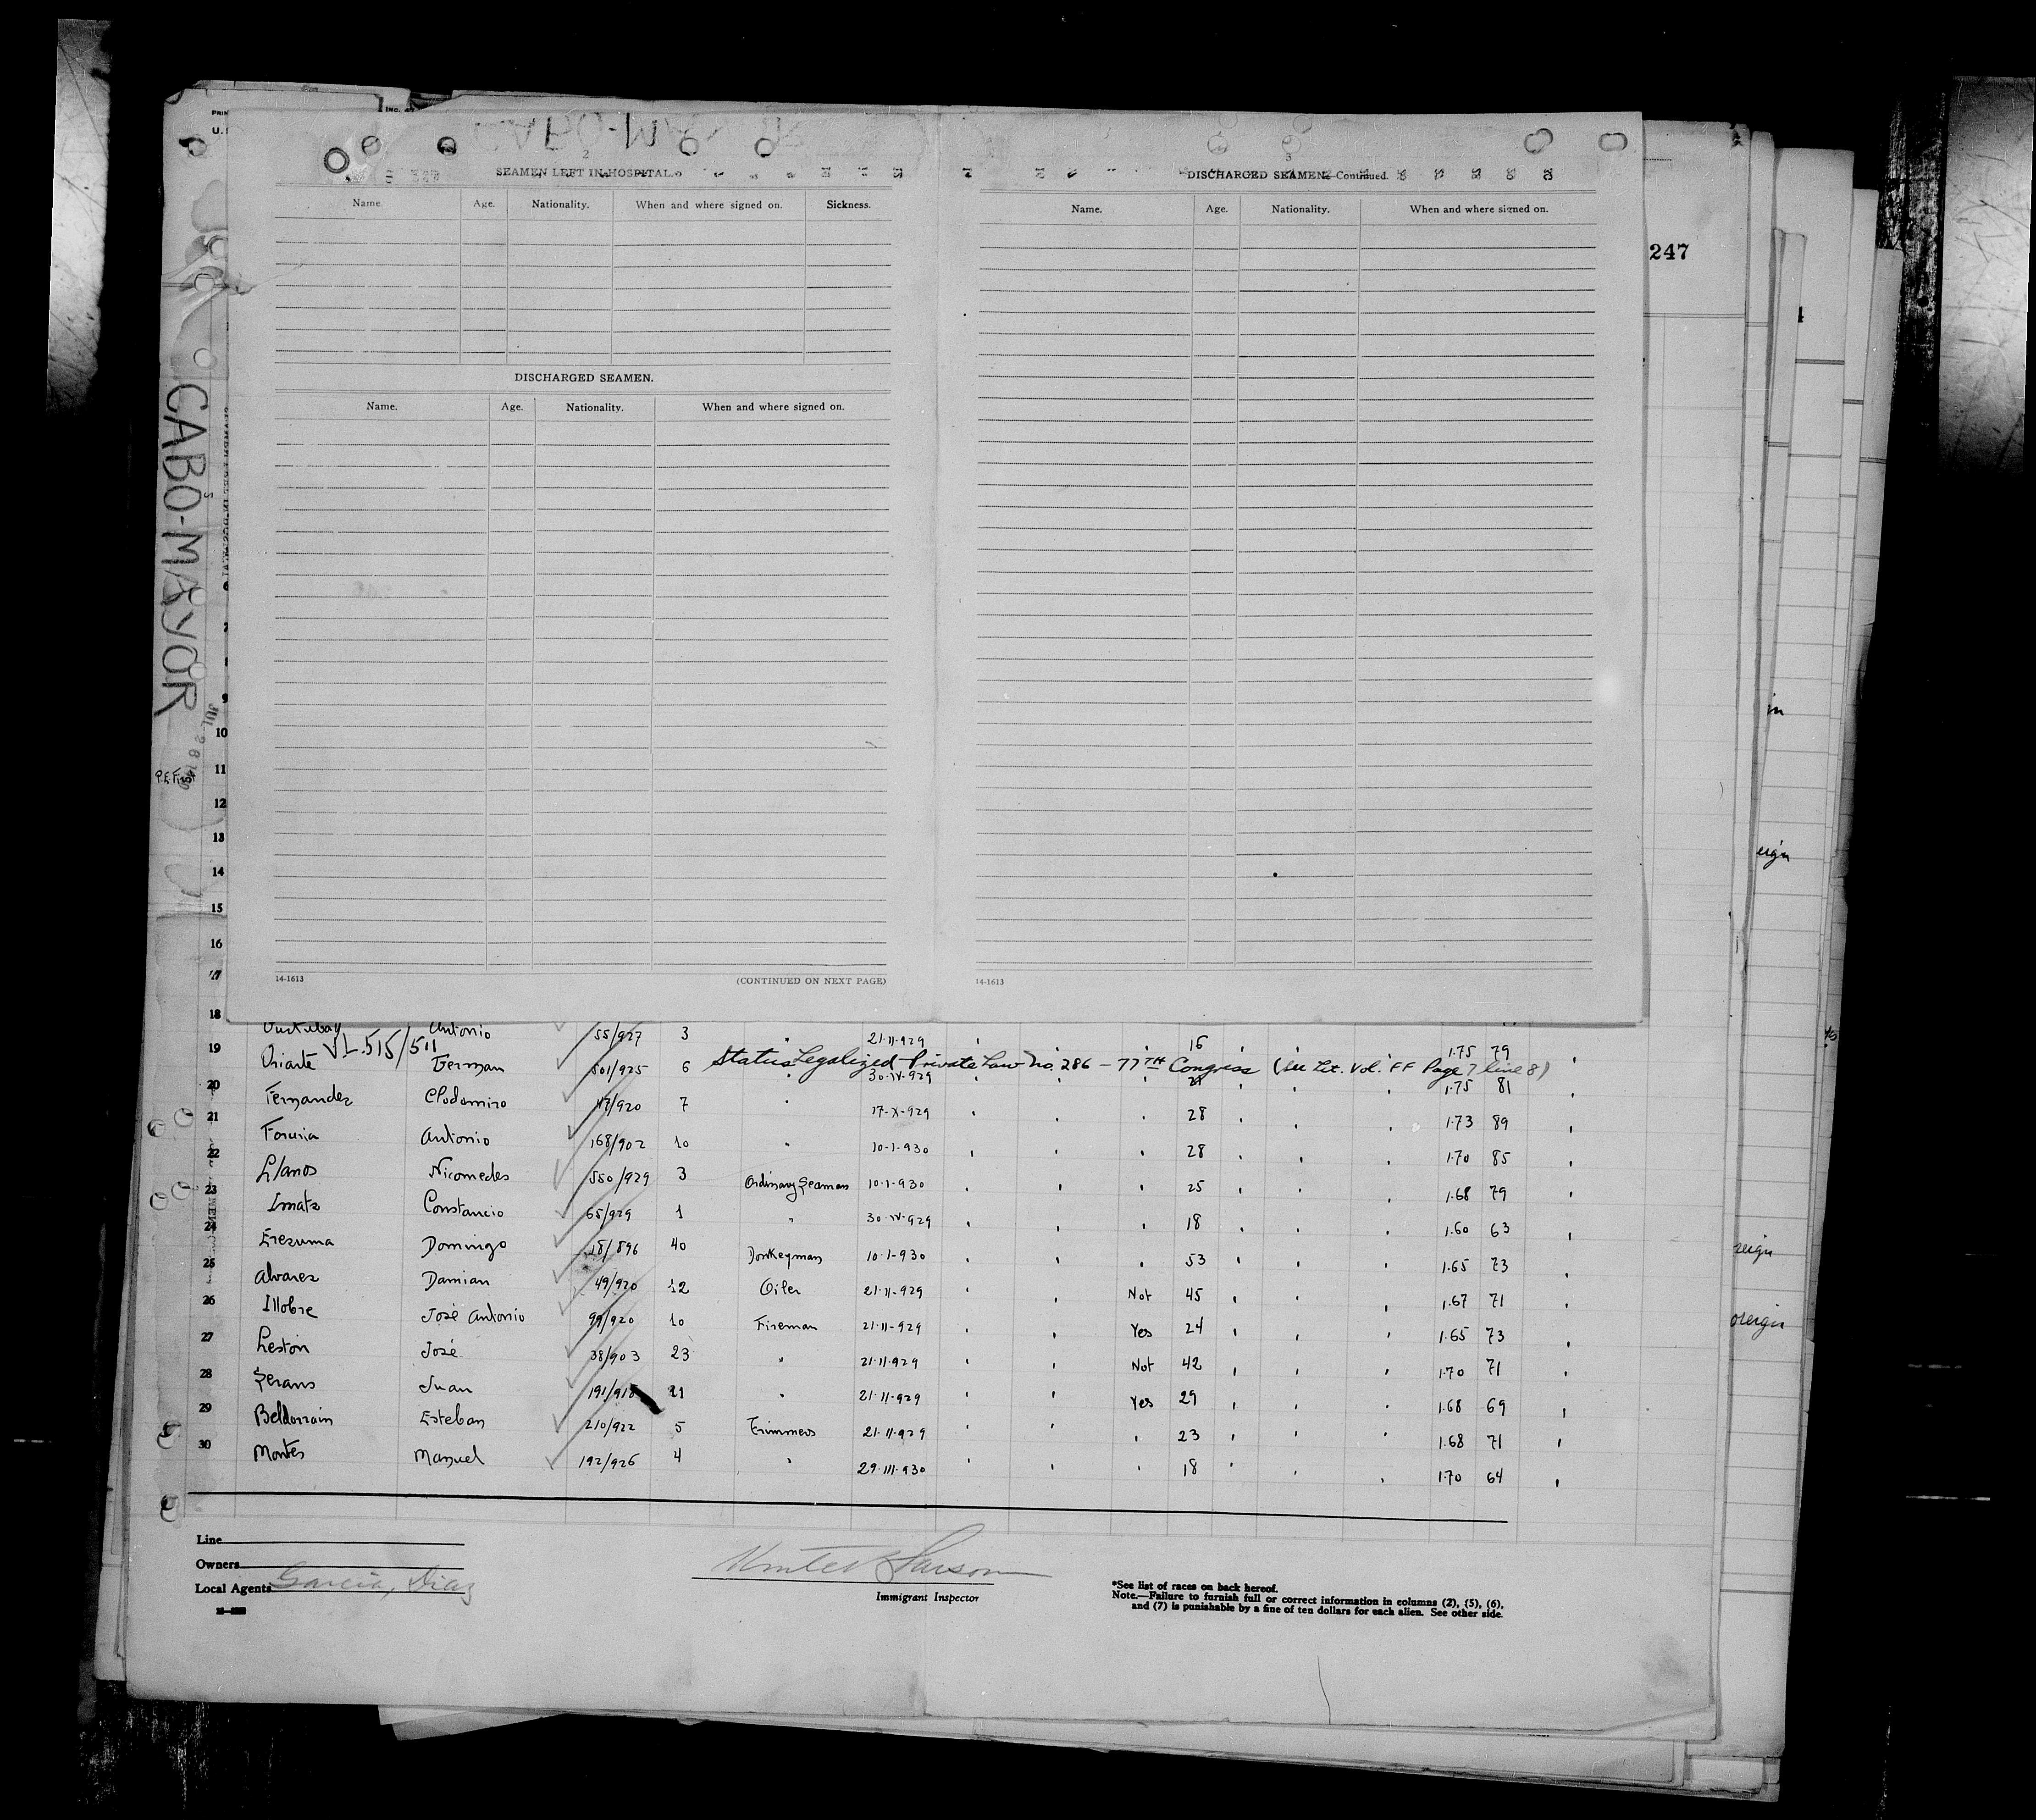 U.
247
2
SEAMEN LEFT IN HOSPITAL.
Name. Age. Nationality. When and where signed on. Sickness.
DISCHARGED SEAMEN.
Name. Age. Nationality. When and where signed on.
14-1613 (CONTINUED ON NEXT PAGE)
3
DISCHARGED SEAMEN—Continued.
Name. Age. Nationality. When and where signed on.
14-1613
CABO-MAYOR
9
10
11
12
13
14
15
16
17
18
Antonio 55/927 3 21-11-929 16 1.75 79
VL.515/511
Status Legalized Private Law No. 286 - 77TH Congress (see Let. Vol. FF Page 7 line 8)
19 Uriarte German 501/925 6 30-IV-929 1.75 81
20 Fernandez Clodomiro 47/920 7 17-X-929 28 1.73 89
21 Antonio 168/902 10 10-1-930 28 1.70 85
22 Llanos Nicomedes 550/929 3 Ordinary Seaman 10-1-930 25 1.68 79
23 Constancio 65/929 1 30-IV-929 18 1.60 63
24 Erezuma Domingo 18/896 40 Donkeyman 10-1-930 53 1.65 73
25 Alvarez Damian 49/920 12 Oiler 21-11-929 Not 45 1.67 71
26 Illobre José Antonio 99/920 10 Fireman 21-11-929 Yes 24 1.65 73
27 Leston José 38/903 23 " 21-11-929 Not 42 1.70 71
28 Juan 191/918 21 " 21-11-929 Yes 29 1.68 69
29 Beldarrain Esteban 210/922 5 Trimmers 21-11-929 " 23 1.68 71
30 Montes Manuel 192/926 4 " 29-III-930 " 18 1.70 64
Line
Owners
Local Agents Garcia, Diaz
Immigrant Inspector
*See list of races on back hereof.
Note.—Failure to furnish full or correct information in columns (2), (5), (6),
and (7) is punishable by a fine of ten dollars for each alien. See other side.